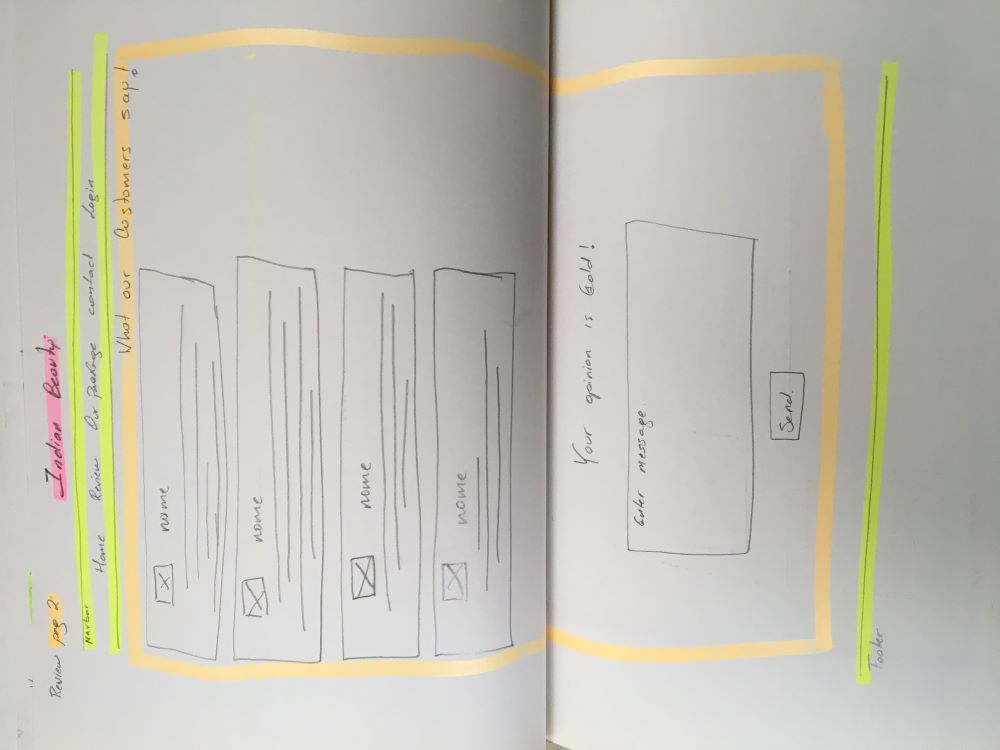 Review pag 2
Indian Beauty
Navbar
Home Review Our Package contact Login
What our Customers say!
name
name
name
name
Your opinion is Gold!
Enter message
Send.
Footer